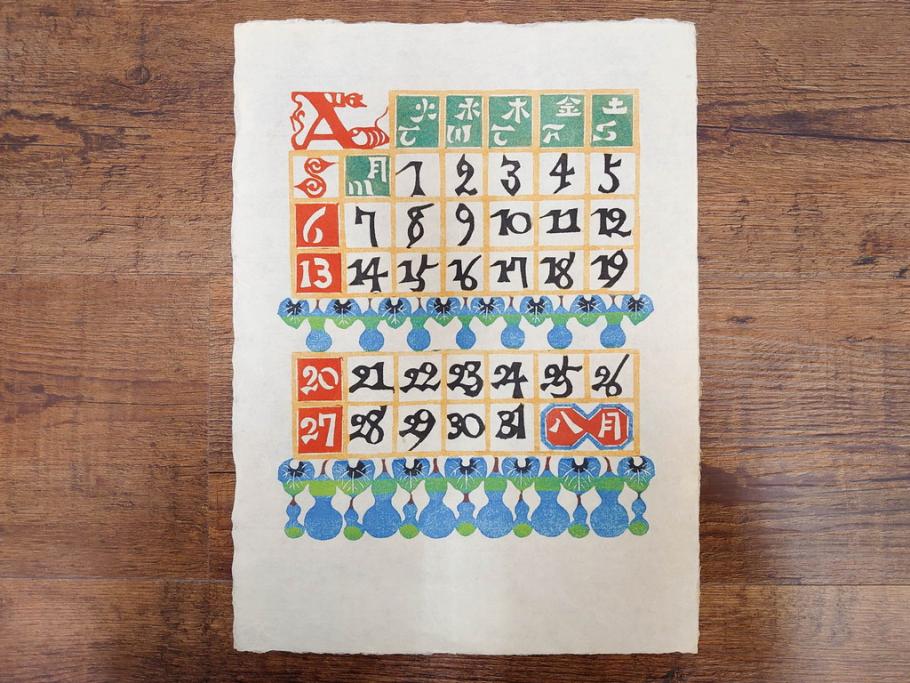 Aug 火 T 水 W 木 T 金 F 土 S
S 月 M 1 2 3 4 5
6 7 8 9 10 11 12
13 14 15 16 17 18 19
20 21 22 23 24 25 26
27 28 29 30 31 八月